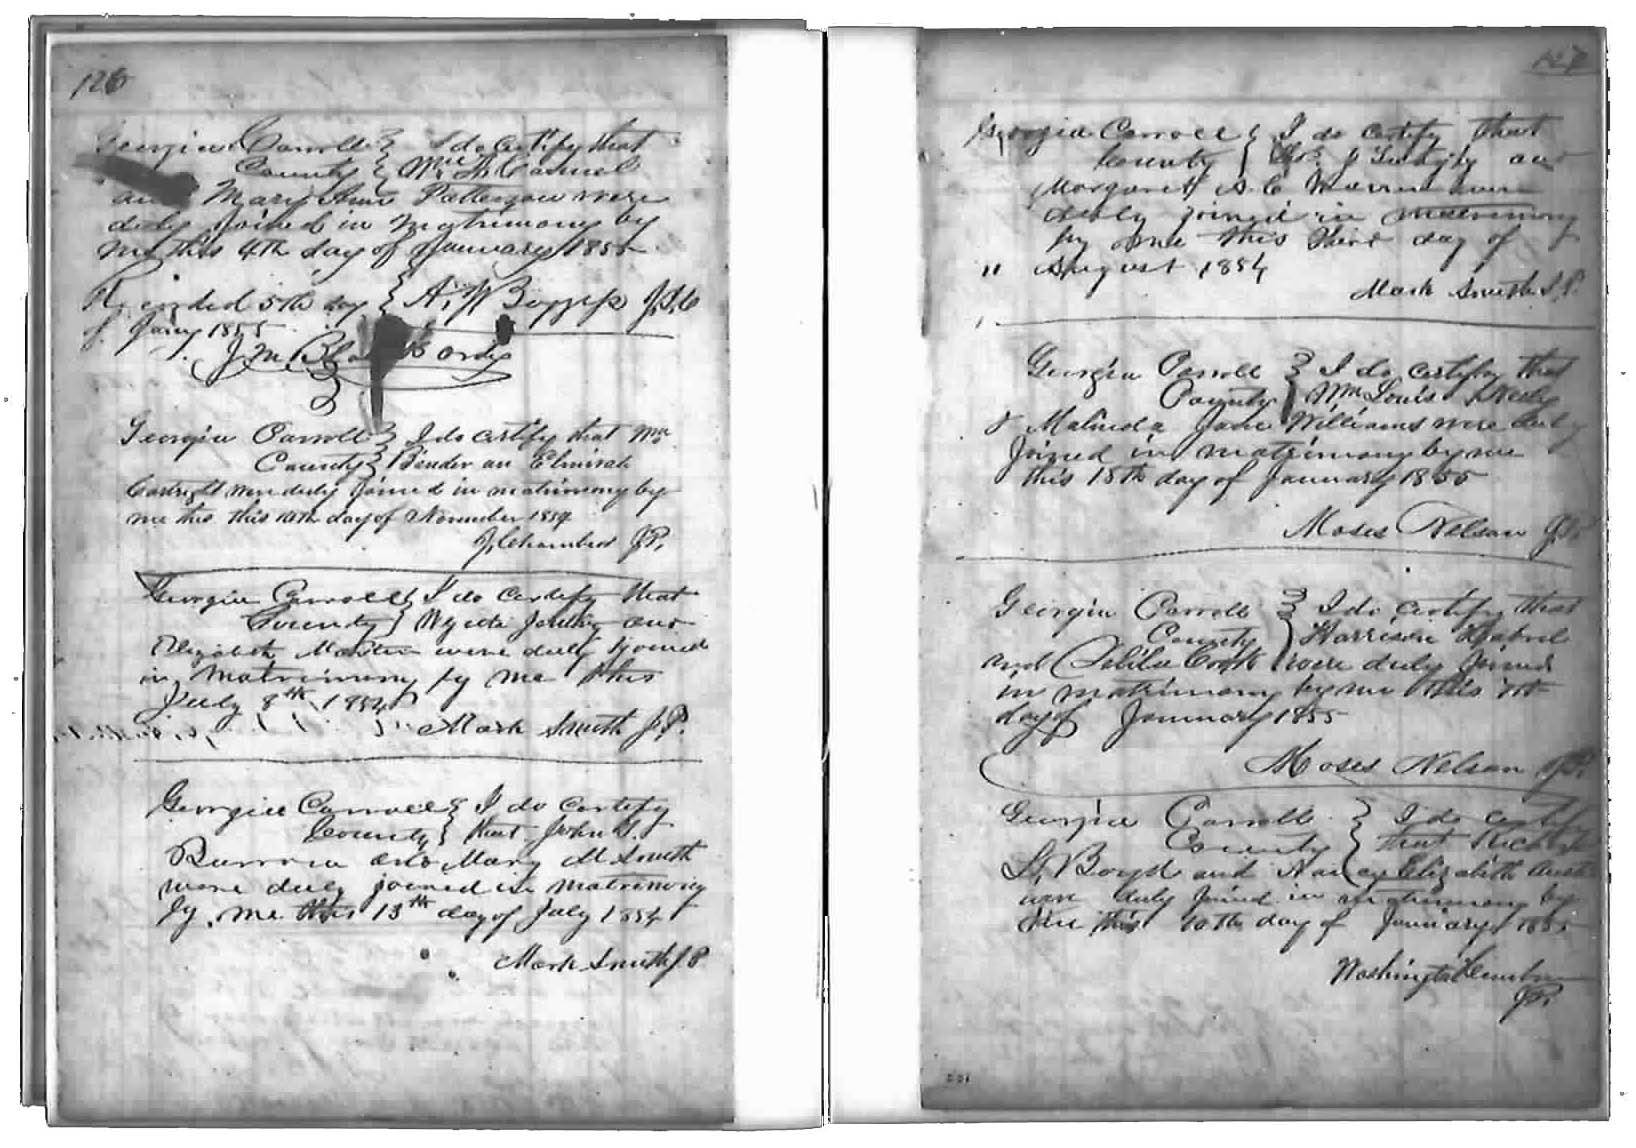 126
Georgia Carroll } I do certify that
County } Wm
and Mary Ann Patterson were
duly joined in matrimony by
me this 4th day of January 1855
Recorded 5th day } A. W Boggess J.I.C
of Jany 1855
J M Bl
Georgia Carroll } I do certify that Wm
County } Bender an Elmirah
were duly joined in matrimony by
me this this 10th day of November 1854
J, Chambers J.P.
Georgia Carroll } I do certify that
County } and
Elizabeth were duly joined
in matrimony by me this
July 8th 1854
Mark Smith J.P.
Georgia Carroll } I do certify
County } that John
and Mary M Smith
were duly joined in matrimony
by me this 13th day of July 1854
Mark Smith J.P
127
Georgia Carroll } I do certify that
County } J and
Margaret A. C Warren were
duly joined in matrimony
by me this day of
August 1854
Mark Smith J.P.
Georgia Carroll } I do certify that
County } Wm Louis
& Malinda Jane Williams were duly
Joined in matrimony by me
this 15th day of January 1855
Moses Nelson J.P.
Georgia Carroll } I do certify that
County } Harrison
and were duly joined
in matrimony by me this
day of January 1855
Moses Nelson J.P.
Georgia Carroll } I do certify
County } that
Boyd and Nancy Elizabeth
were duly joined in matrimony by
me this 10th day of January 1855
Washington
J.P.